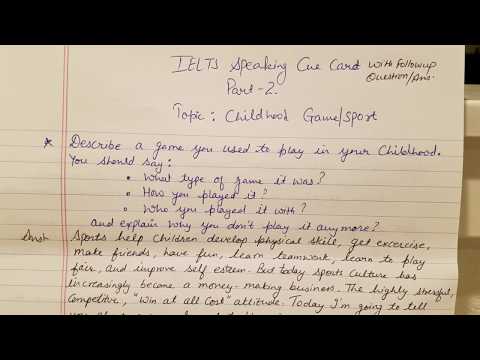 IELTS Speaking Cue Card
With followup
Question/Ans.
Part-2.
Topic: Childhood Game/Sport
* Describe a game you used to play in your Childhood.
You should say:
• What type of game it was?
• How you played it?
• Who you played it with?
and explain why you don't play it anymore?
Sports help children develop physical skill, get excercise,
make friends, have fun, learn teamwork, learn to play
fair, and improve self esteem. But today sports culture has
increasingly become a money-making business. The highly stressful,
Competitive, "Win at all Cost" attitude. Today I'm going to tell